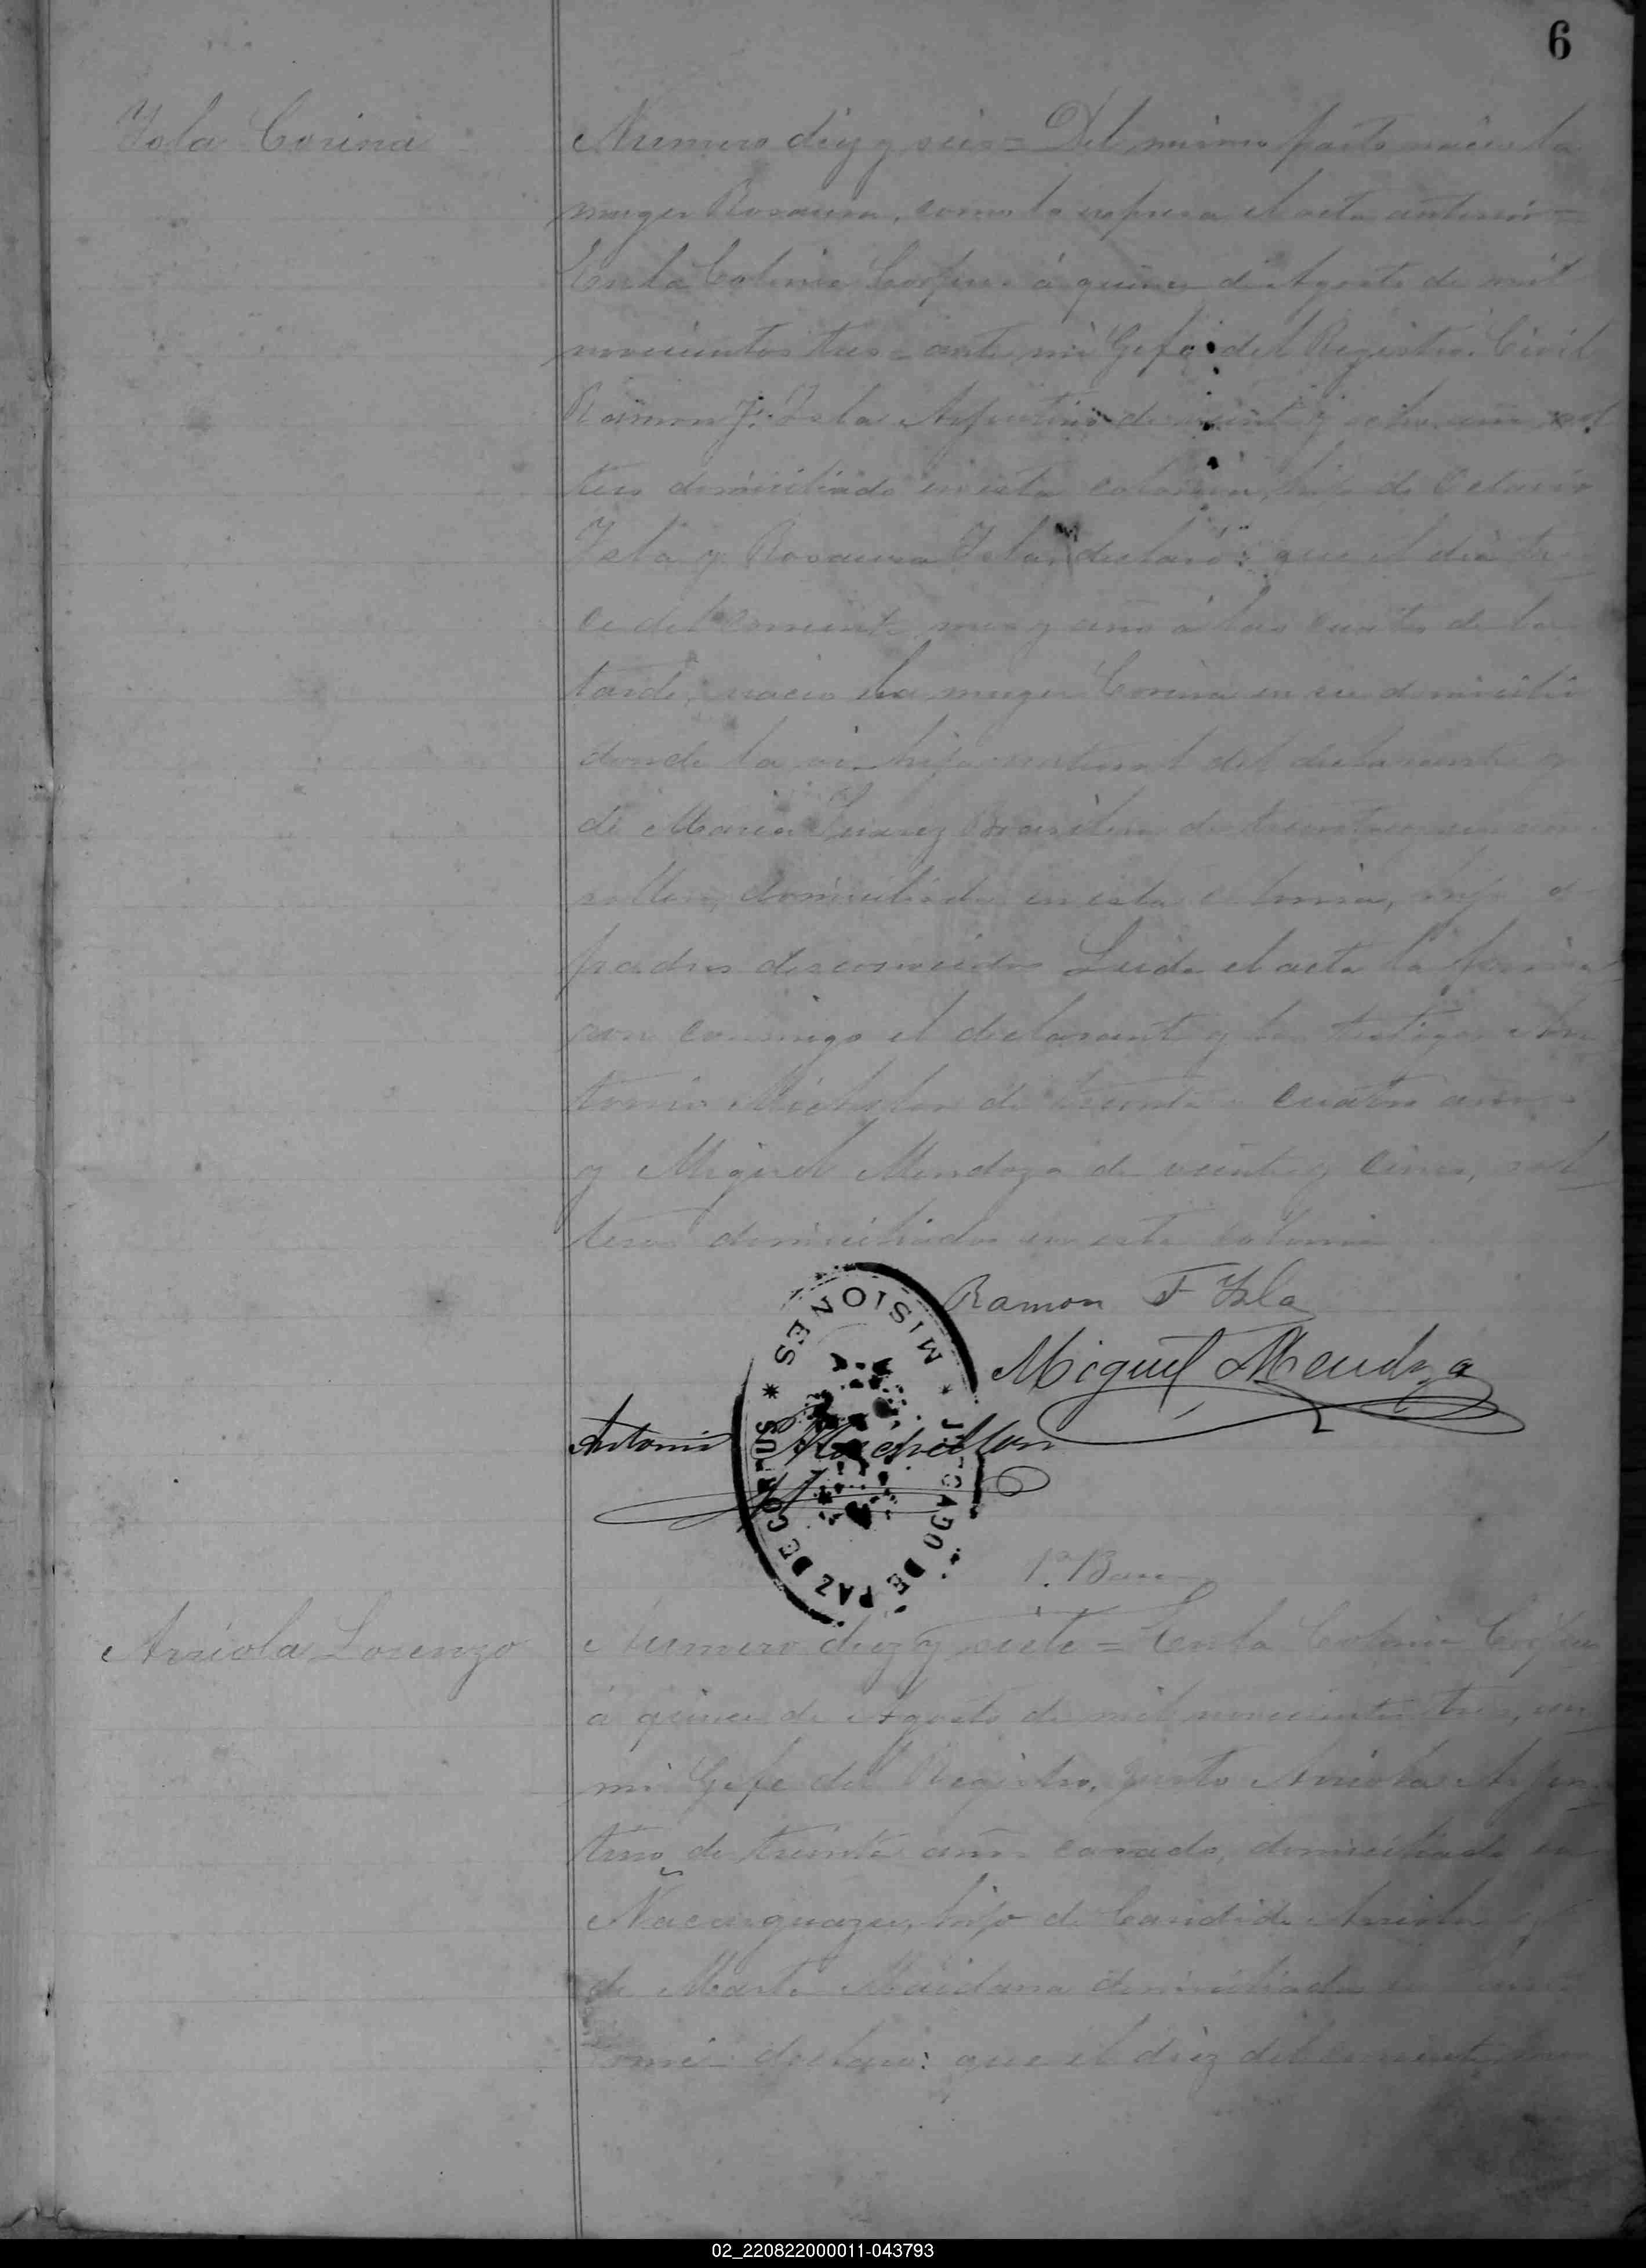 6
Isla Corina
Numero diez y seis = Del mismo parto nació la
muger Rosaura, como lo expresa el acta anterior =
En la Colonia Corpus á quince de Agosto de mil
novecientos tres = ante mi Gefe del Registro Civil
Ramon F. Isla Argentino de veinte y ocho años sol
tero domiciliado en esta colonia, hijo de Octavio
Isla y Rosaura Isla, declaró: que el dia tre
ce del corriente mes y año á las cuatro de la
tarde, nacio la muger Corina en su domicilio
donde la vi hija natural del declarante y
de Maria Suarez Brasilera de treinta y un años
soltera, domiciliada en esta colonia, hija de
padres desconocidos Leida el acta la firma
ron conmigo el declarante y los testigos An
tonio de treinta y cuatro años
y Miguel Mendoza de veinte y cinco, sol
teros domiciliados en esta colonia
Ramon F Isla
Miguel Mendoza
Antonio
JUZGADO DE PAZ DE CORPUS * MISIONES *
Arriola Lorenzo
Numero diez y siete = En la Colonia Corpus
á quince de Agosto de mil novecientos tres, an
mi Gefe del Registro, Justo Arriola Argen
tino de treinta años casado, domiciliado en
Ñacanguazu, hijo de Candido Arriola y
de Marta Maidana domiciliados en
declaro: que el diez del corriente mes
02_220822000011-043793